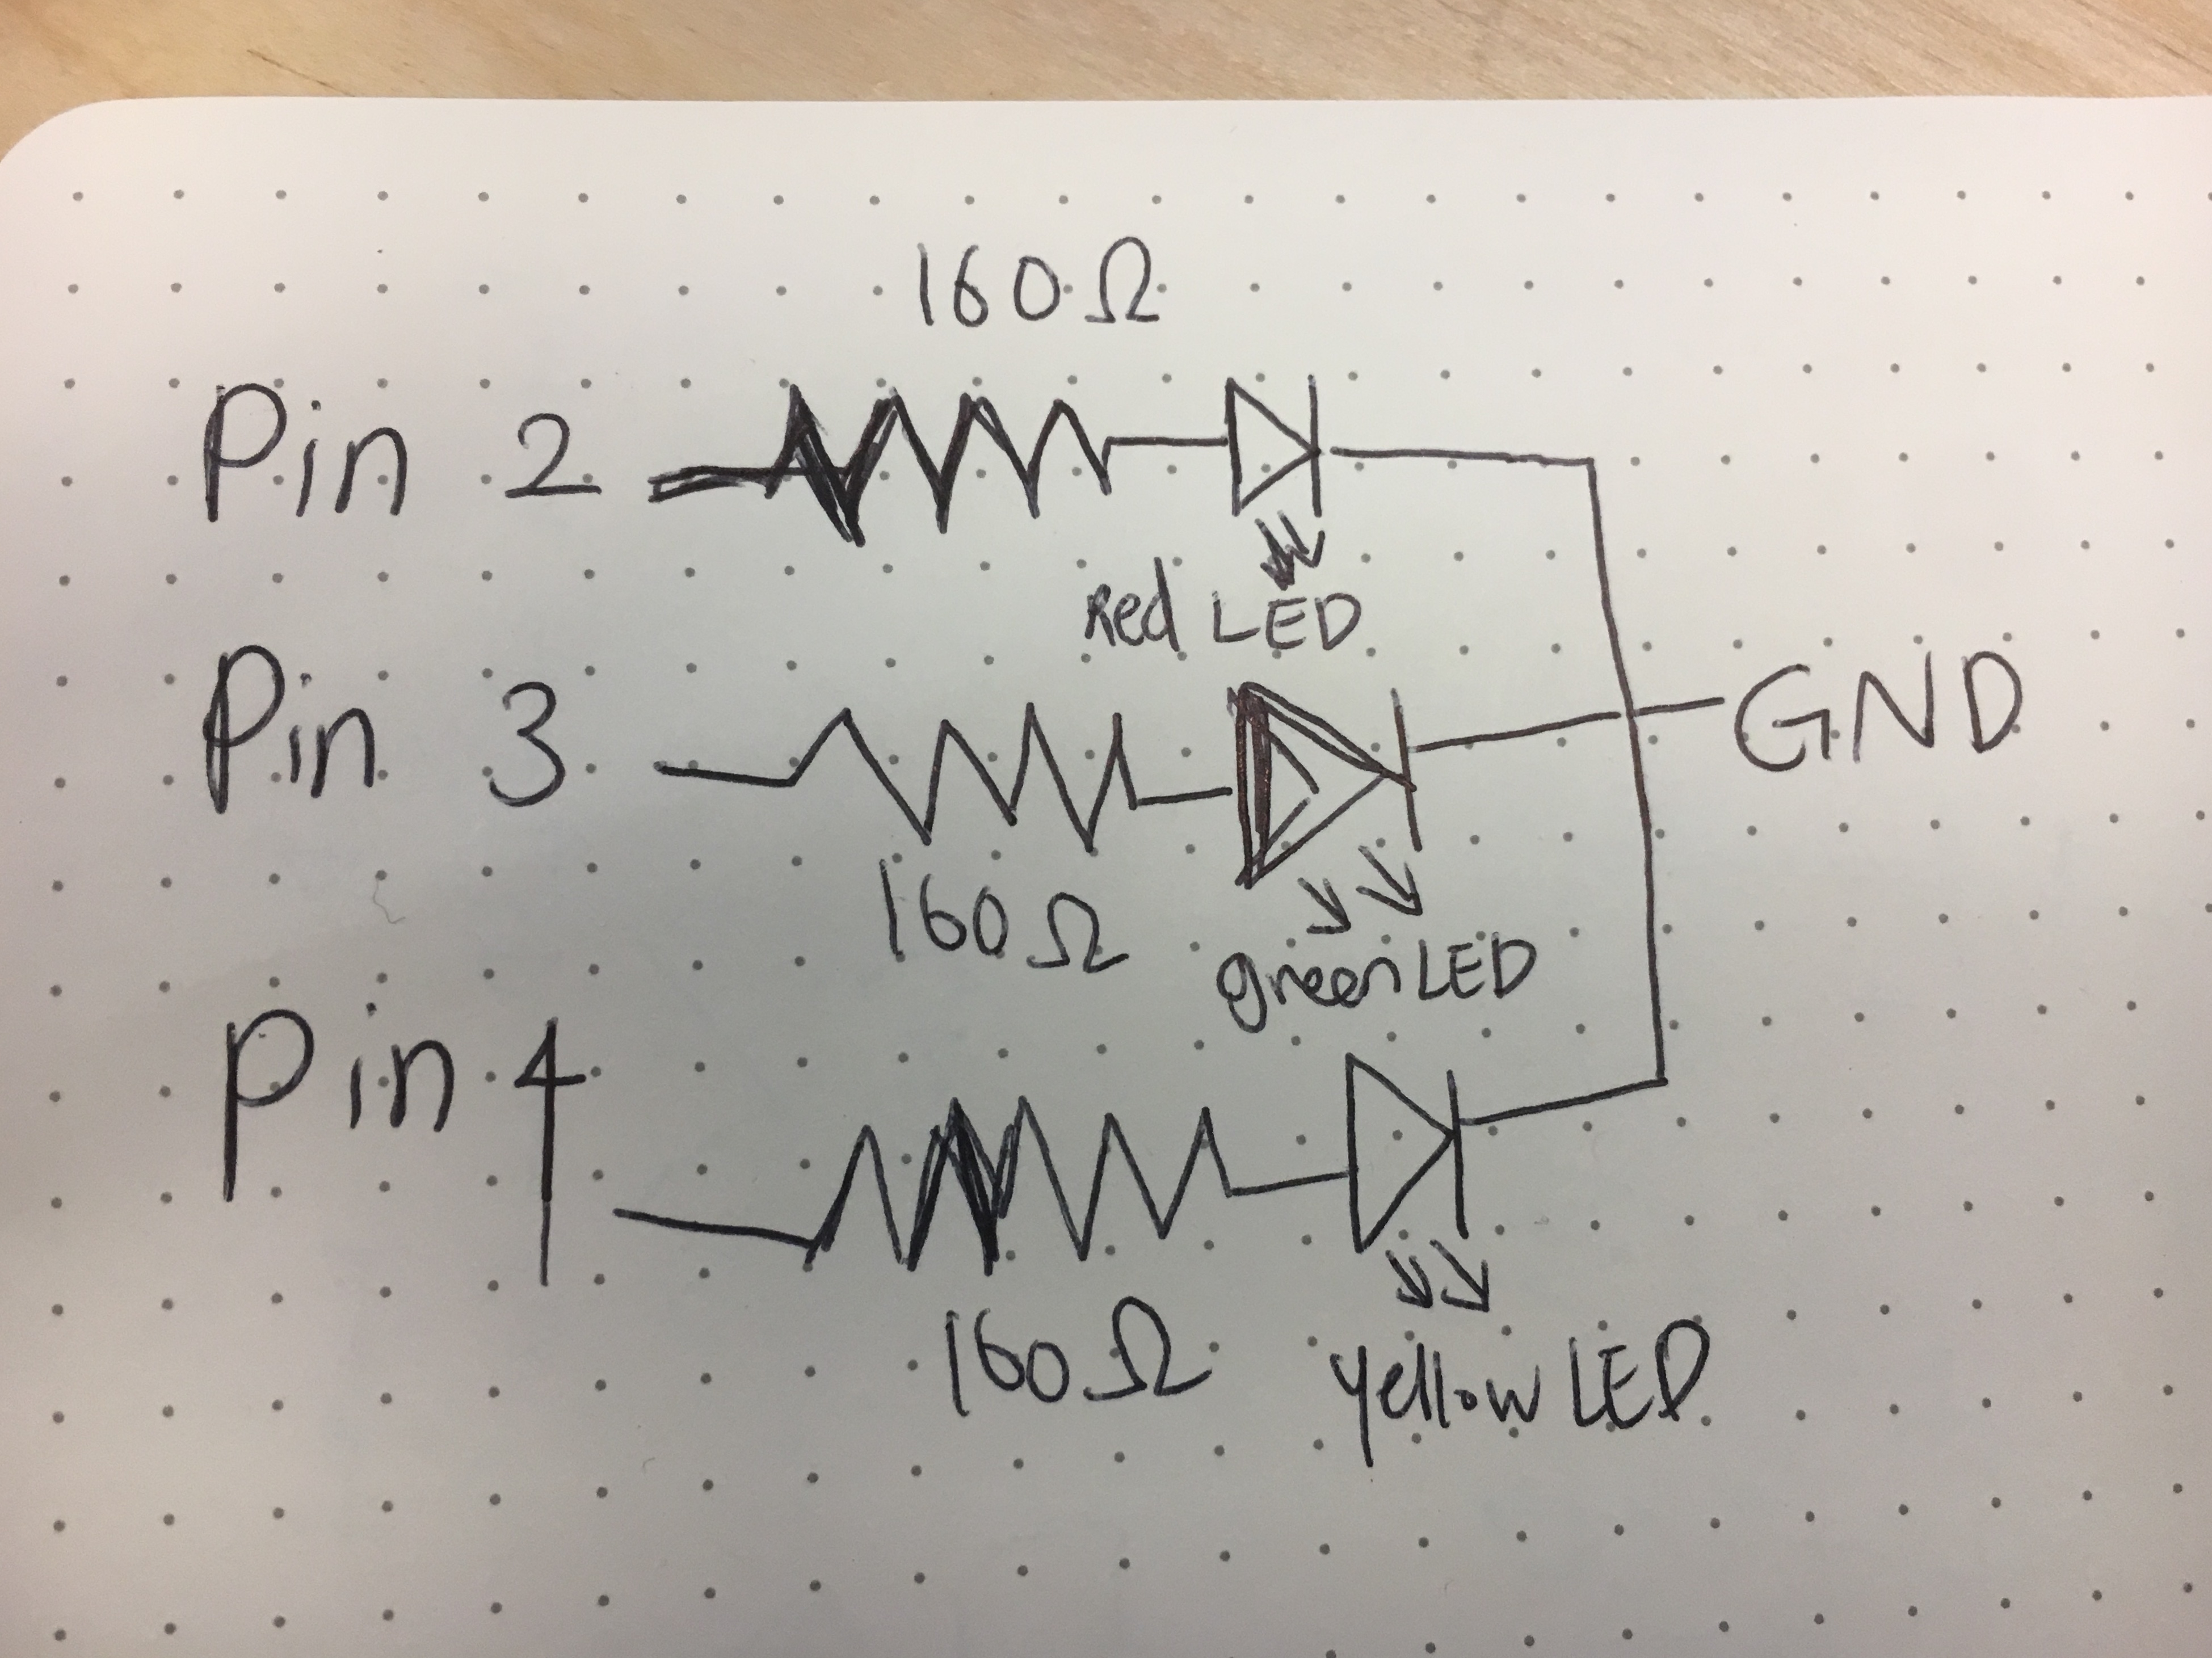 160Ω
Pin 2
Red LED
Pin 3
GND
160Ω
green LED
Pin 4
160Ω
yellow LED